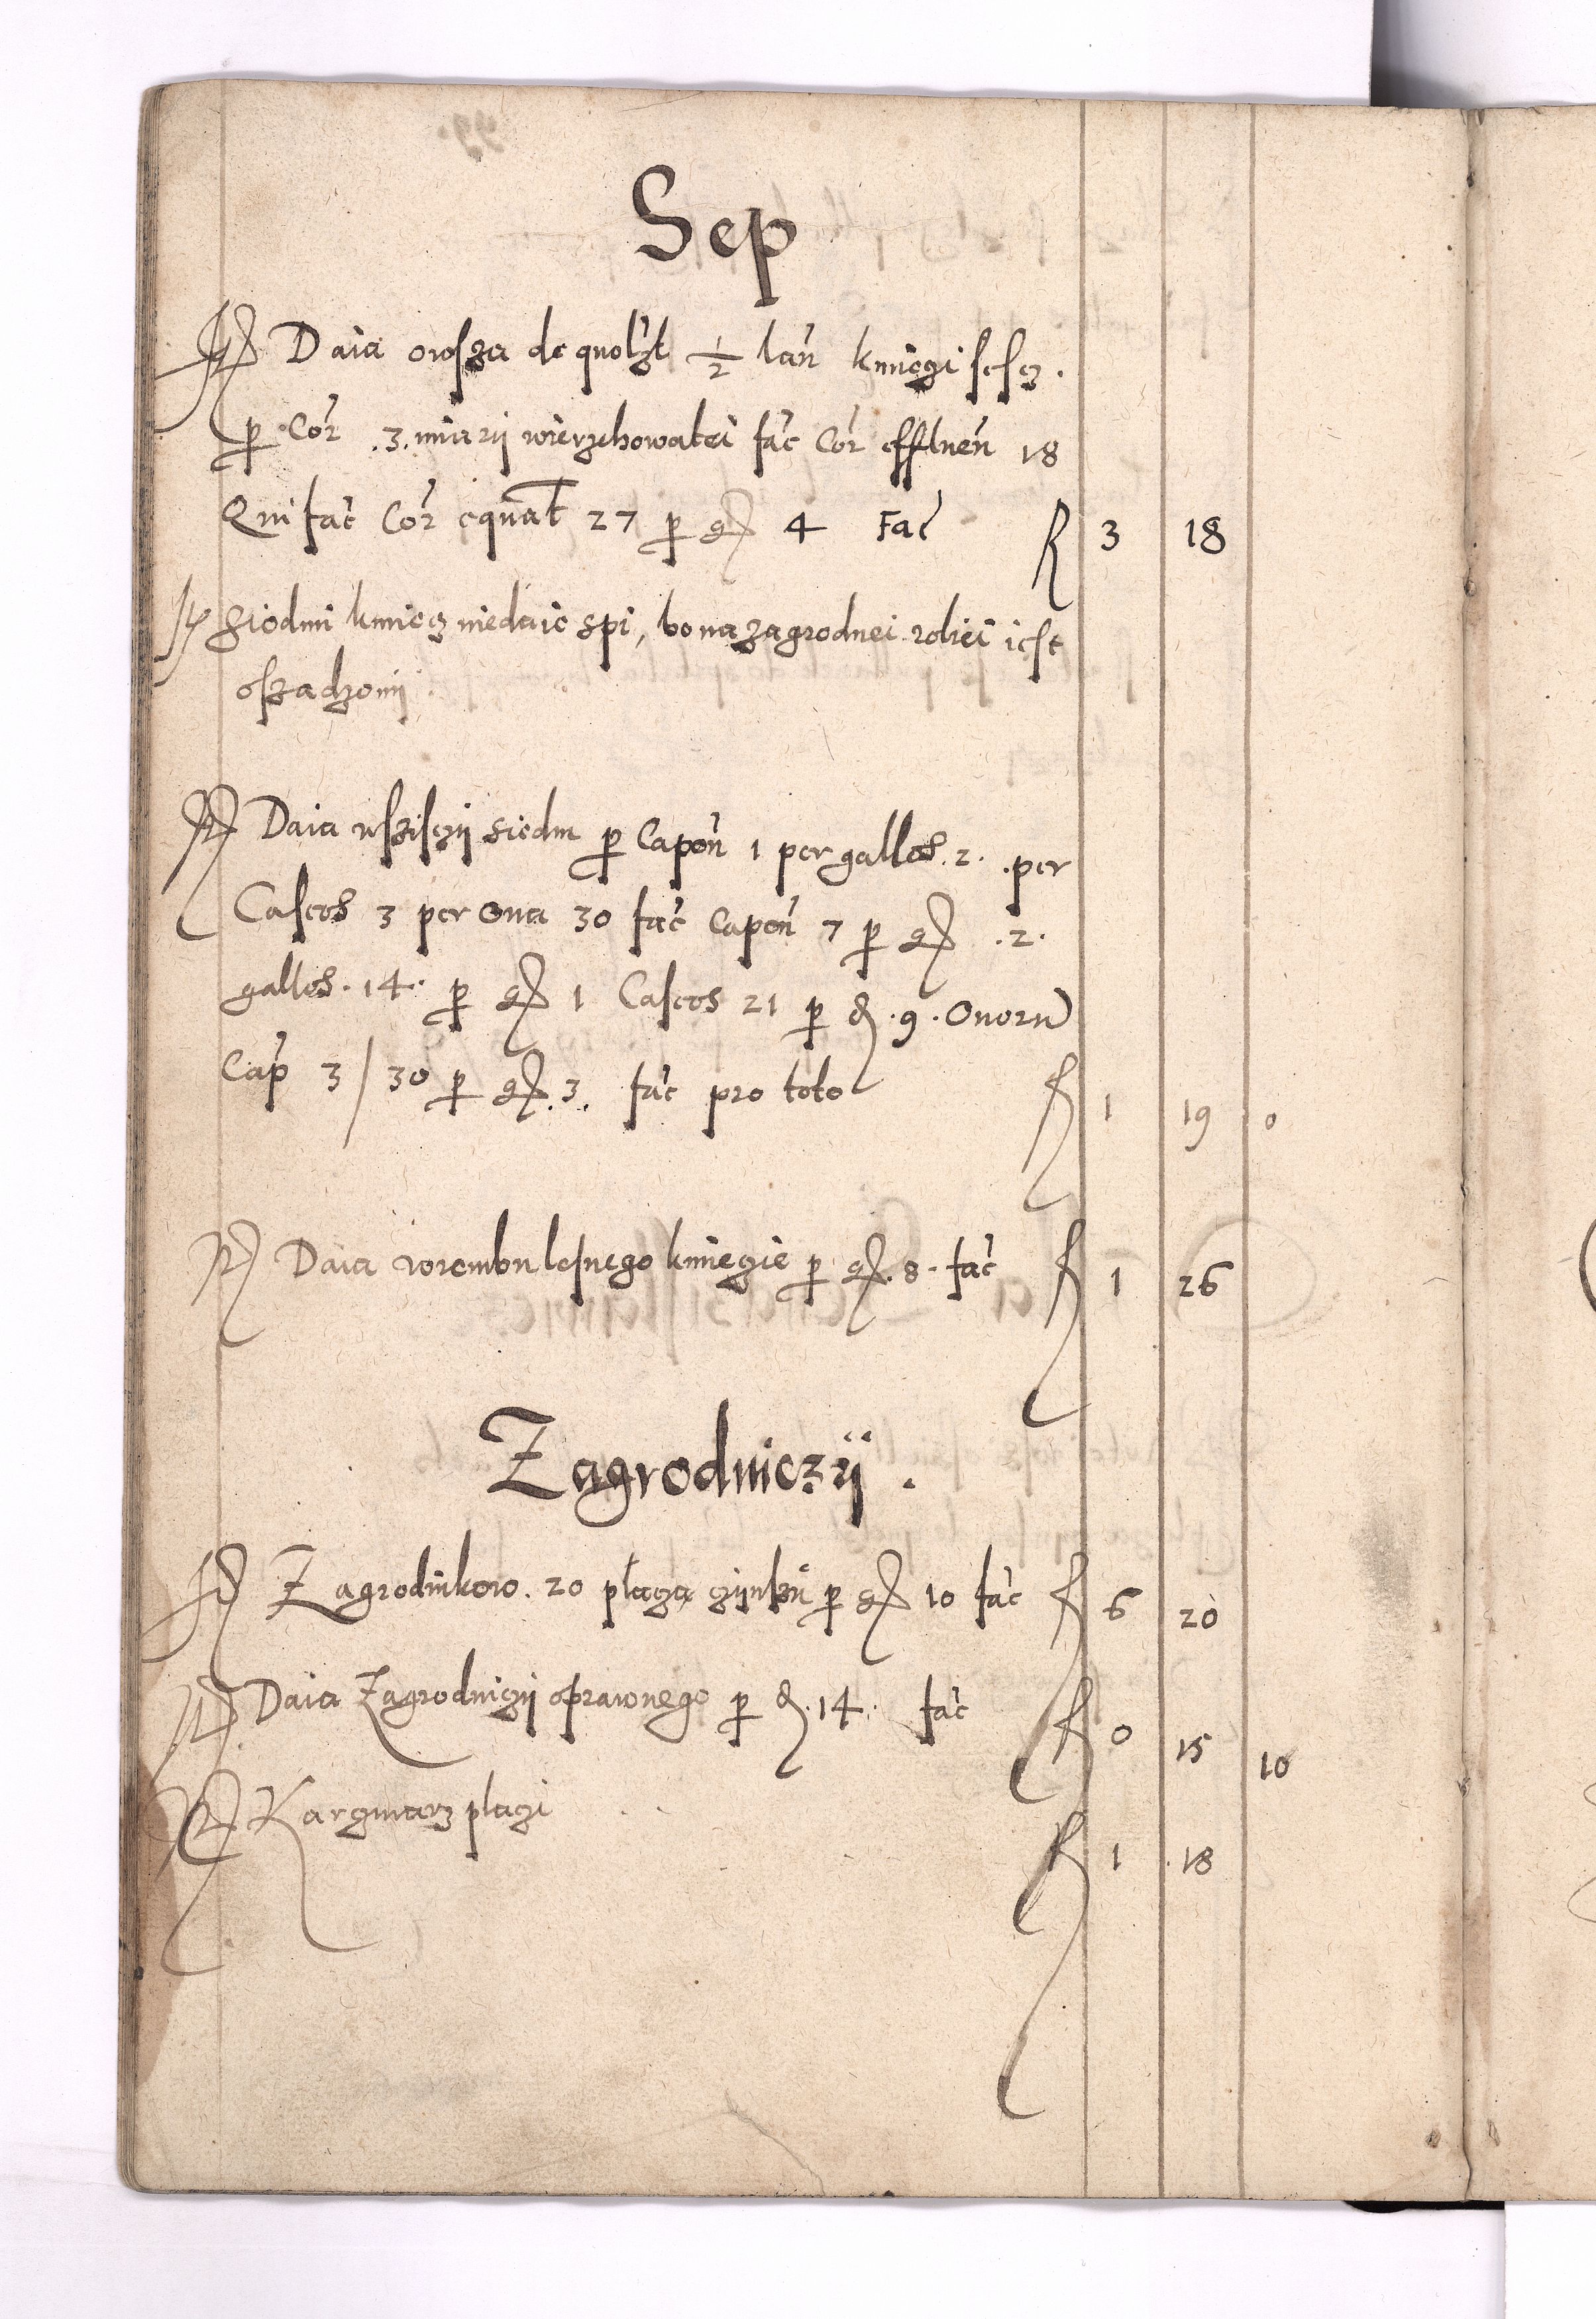 Sep
It Daia owsza de quolzt 1/2 lan̄ kmiczi sescz.
p Cor̄ .3. miarij wierzchowatei fac̄ Cor̄ efflueñ 18
Qui fac̄ Cor̄ equat̄ 27 p gr 4 Fac̄ f 3 18
It Siodmi kmiecz niedaie spi, bo na zagrodnei roliei iest
oszadzonij.
It Daia wszisczij siedm p Capon̄ 1 per gallos .2. per
Caseos 3 per Oua 30 fac̄ Capon̄ 7 p gr .2.
gallos .14. p gr 1 Caseos 21 p d .9. Ouorū
Cap 3/30 p gr .3. fac̄ pro toto f 1 19 0
It Daia wrembu lesnego kmiezie p gr .8. fac̄ f 1 26
Zagrodniczÿ.
It Zagrodnikow .20 placza czijnszu p gr 10 fac̄ f 6 20
It Daia Zagrodniczij oprawnego p d .14. fac̄ f 0 15 10
It Karczmarz placzi f 1 18